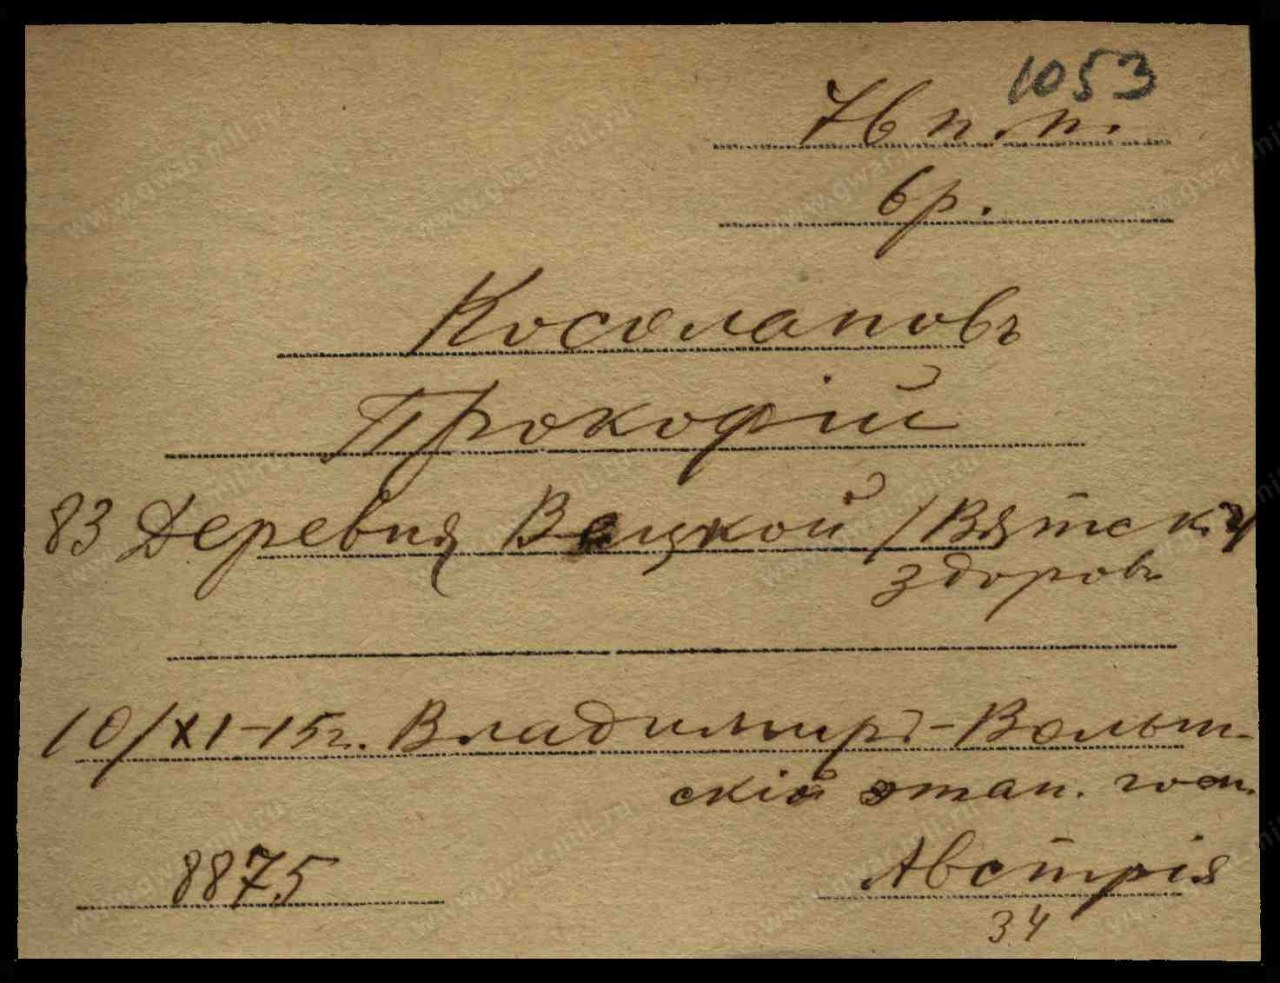 1053
76 п. п.
бр.
Косолаповъ
Прокофій
83 Деревня Вяцкой / Вятск. у
здоровъ
10/XI-15г. Владимиръ-Волын-
скій этап. гос.
8875
Австрія
34